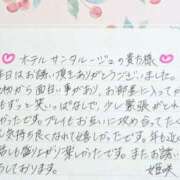 ホテルサンタルージュの貴方様
本日はお誘い頂きありがとうございました。
から面白い事があり、お部屋に入ってか
らもずっと笑いっぱなしで、少し緊張がとれ
たかったです。プレイもお互いに攻め合ってたく
気持ち良くなれて嬉しかったです。年も近
話も盛り上がり楽しかったです。またお誘い
しております。
姫咲